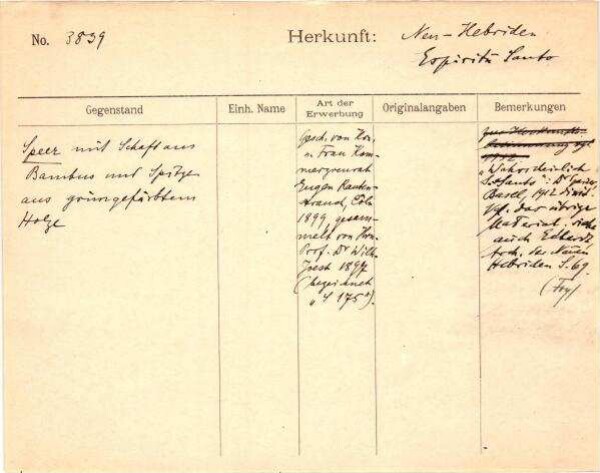 No. 3839
Herkunft: Neu-Hebriden
Espiritu Santo
Gegenstand
Einh. Name
Art der
Erwerbung
Originalangaben
Bemerkungen
Speer mit Schaft aus
Bambus und Spitze
aus grüngefärbtem
Holze
Gesch. von Hrn.
u. Frau Kom-
merzienrat
Eugen Rauten-
strauch, Cöln
1899 gesam-
melt von Hrn.
Prof. Dr Wilh.
Joest 1897
(bezeichnet
175").
"Wahrscheinlich
Santo": Dr
Basel, 1912
das übrige
Material, siehe
auch
der Neuen
Hebriden S. 69
(Foy)